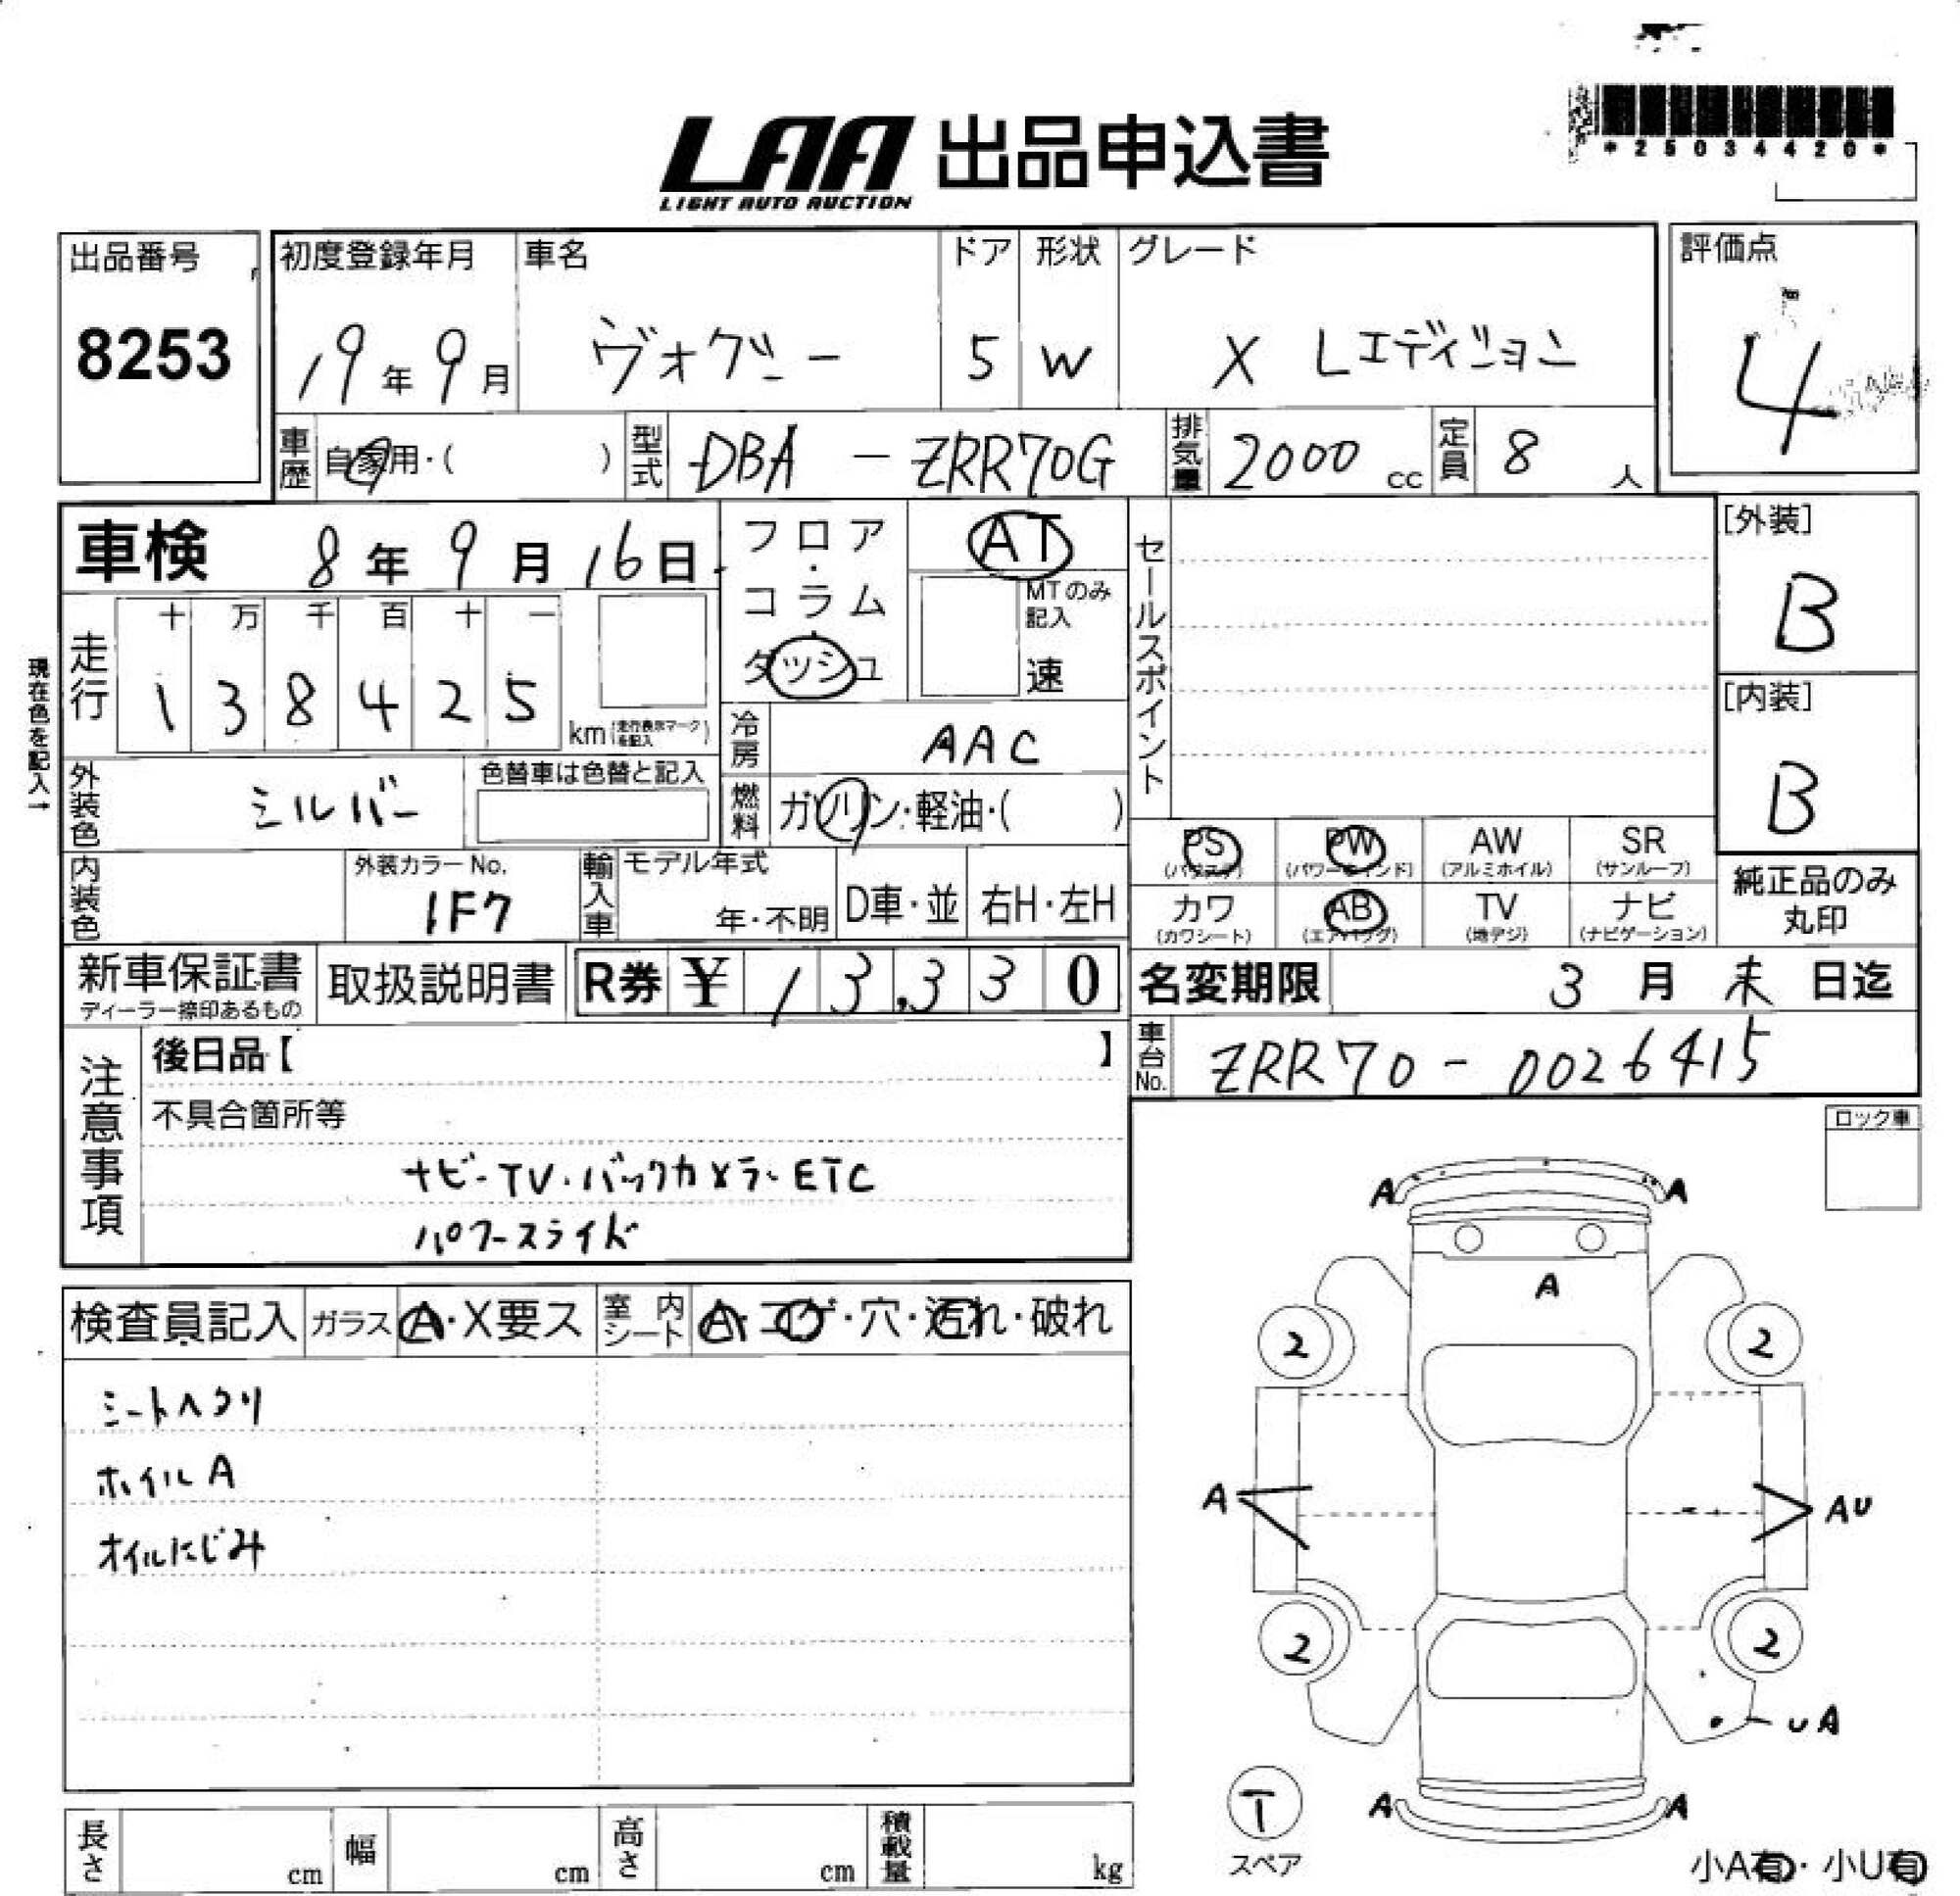 *25034420*
LAA 出品申込書
LIGHT AUTO AUCTION
出品番号
8253
初度登録年月
19年9月
車名
ヴォクシー
ドア
5
形状
W
グレード
X Lエディション
評価点
4
車歴
自家用・( )
型式
DBA - ZRR70G
排気量
2000 cc
定員
8 人
車検 8年9月16日
フロア・コラム・ダッシュ
AT
MTのみ記入
速
セールスポイント
[外装]
B
[内装]
B
現在色を記入→
走行
十 万 千 百 十 一
1 3 8 4 2 5
km (走行表示マークを記入)
冷房
AAC
外装色
シルバー
色替車は色替と記入
燃料
ガソリン・軽油・( )
PS (パワステ)
PW (パワーウインド)
AW (アルミホイル)
SR (サンルーフ)
内装色
外装カラーNo.
1F7
輸入車
モデル年式
年・不明
D車・並
右H・左H
カワ (カワシート)
AB (エアバッグ)
TV (地デジ)
ナビ (ナビゲーション)
純正品のみ
丸印
新車保証書
ディーラー捺印あるもの
取扱説明書
R券 ¥ 13,330
名変期限 3月末日迄
車台No.
ZRR70-0026415
注意事項
後日品【 】
不具合箇所等
ナビ・TV・バックカメラ・ETC
パワースライド
ロック車
検査員記入
ガラス
A・X要ス
室内シート
A・コゲ・穴・汚れ・破れ
シートヘタリ
ホイルA
オイルにじみ
A A
A
2 2
A AU
2 2
UA
T
スペア
A A
小A有・小U有
長さ cm
幅 cm
高さ cm
積載量 kg